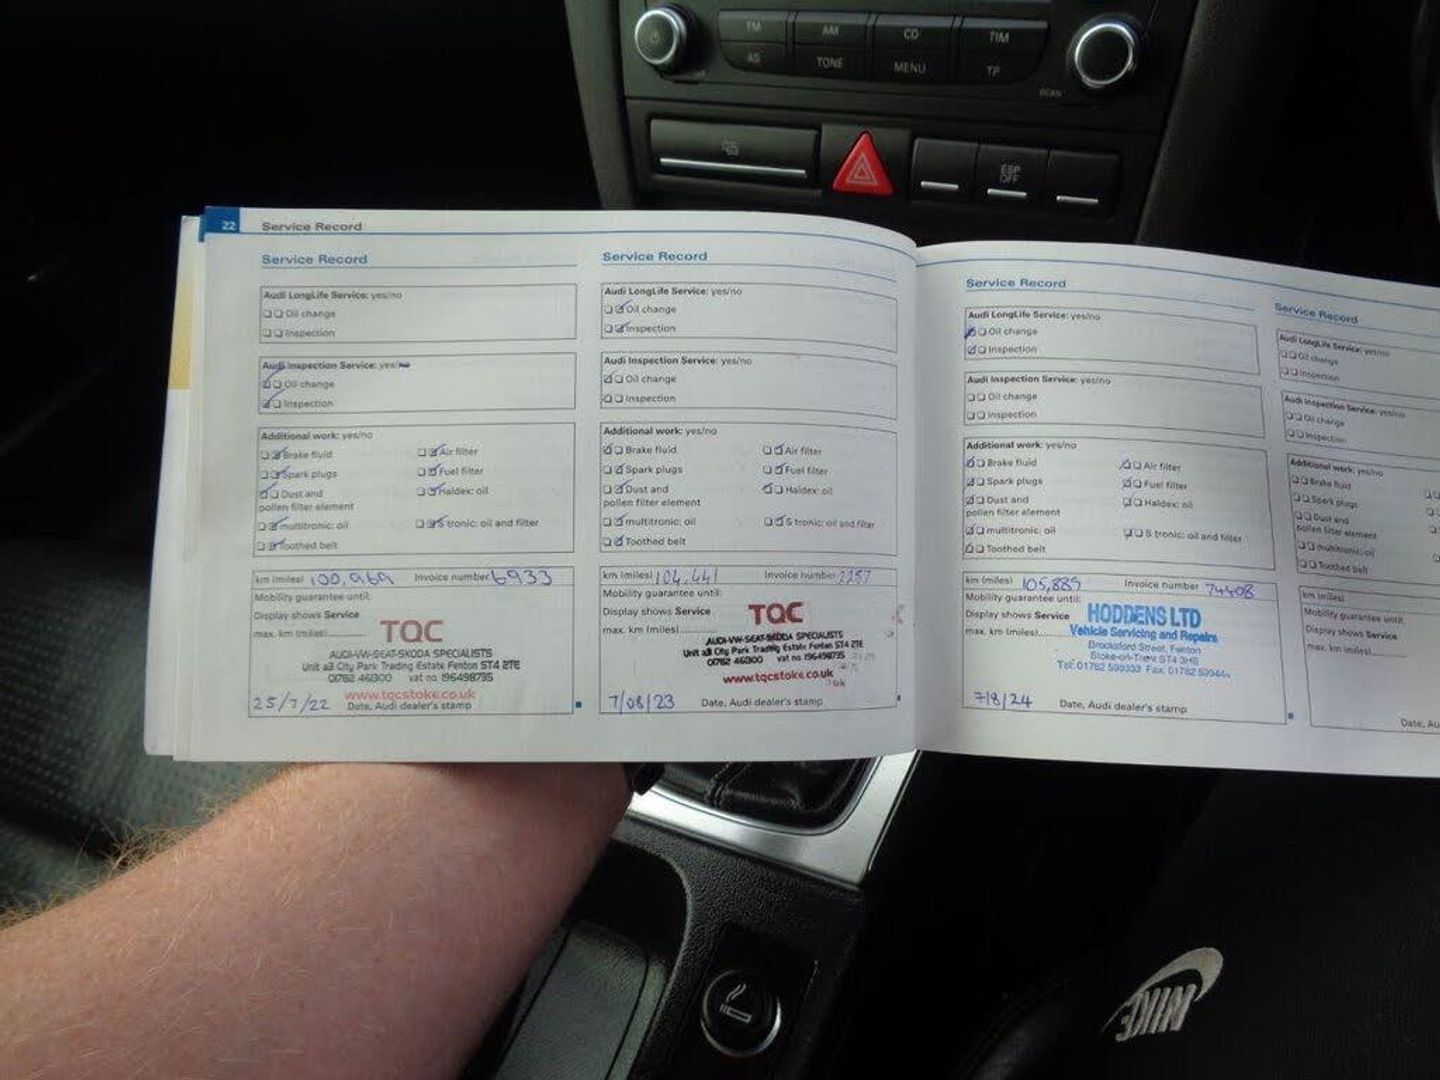 FM AM CD TIM
AS TONE MENU TP
SCAN
ESP
OFF
22 Service Record
Service Record
Audi LongLife Service: yes/no
Oil change
Inspection
Audi Inspection Service: yes/no
Oil change
Inspection
Additional work: yes/no
Brake fluid Air filter
Spark plugs Fuel filter
Dust and Haldex: oil
pollen filter element
multitronic: oil S tronic: oil and filter
Toothed belt
km (miles) 100,969 Invoice number 6933
Mobility guarantee until:
Display shows Service
max. km (miles)
TQC
AUDI-VW-SEAT-SKODA SPECIALISTS
Unit a3 City Park Trading Estate Fenton ST4 2TE
01782 461300 vat no 196498735
www.tqcstoke.co.uk
25/7/22 Date, Audi dealer's stamp
Service Record
Audi LongLife Service: yes/no
Oil change
Inspection
Audi Inspection Service: yes/no
Oil change
Inspection
Additional work: yes/no
Brake fluid Air filter
Spark plugs Fuel filter
Dust and Haldex: oil
pollen filter element
multitronic: oil S tronic: oil and filter
Toothed belt
km (miles) 104,441 Invoice number 2257
Mobility guarantee until:
Display shows Service
max. km (miles)
TQC
AUDI-VW-SEAT-SKODA SPECIALISTS
Unit a3 City Park Trading Estate Fenton ST4 2TE
01782 461300 vat no 196498735
www.tqcstoke.co.uk
7/08/23 Date, Audi dealer's stamp
Service Record
Audi LongLife Service: yes/no
Oil change
Inspection
Audi Inspection Service: yes/no
Oil change
Inspection
Additional work: yes/no
Brake fluid Air filter
Spark plugs Fuel filter
Dust and Haldex: oil
pollen filter element
multitronic: oil S tronic: oil and filter
Toothed belt
km (miles) 105,885 Invoice number 74408
Mobility guarantee until:
Display shows Service
max. km (miles)
HODDENS LTD
Vehicle Servicing and Repairs
Brocksford Street, Fenton
Stoke-on-Trent ST4 3HS
Tel: 01782 599333 Fax: 01782
7/8/24 Date, Audi dealer's stamp
Service Record
Audi LongLife Service: yes/no
Oil change
Inspection
Audi Inspection Service: yes/no
Oil change
Inspection
Additional work: yes/no
Brake fluid
Spark plugs
Dust and
pollen filter element
multitronic: oil
Toothed belt
km (miles)
Mobility guarantee until:
Display shows Service
max. km (miles)
Date, Au
NIKE